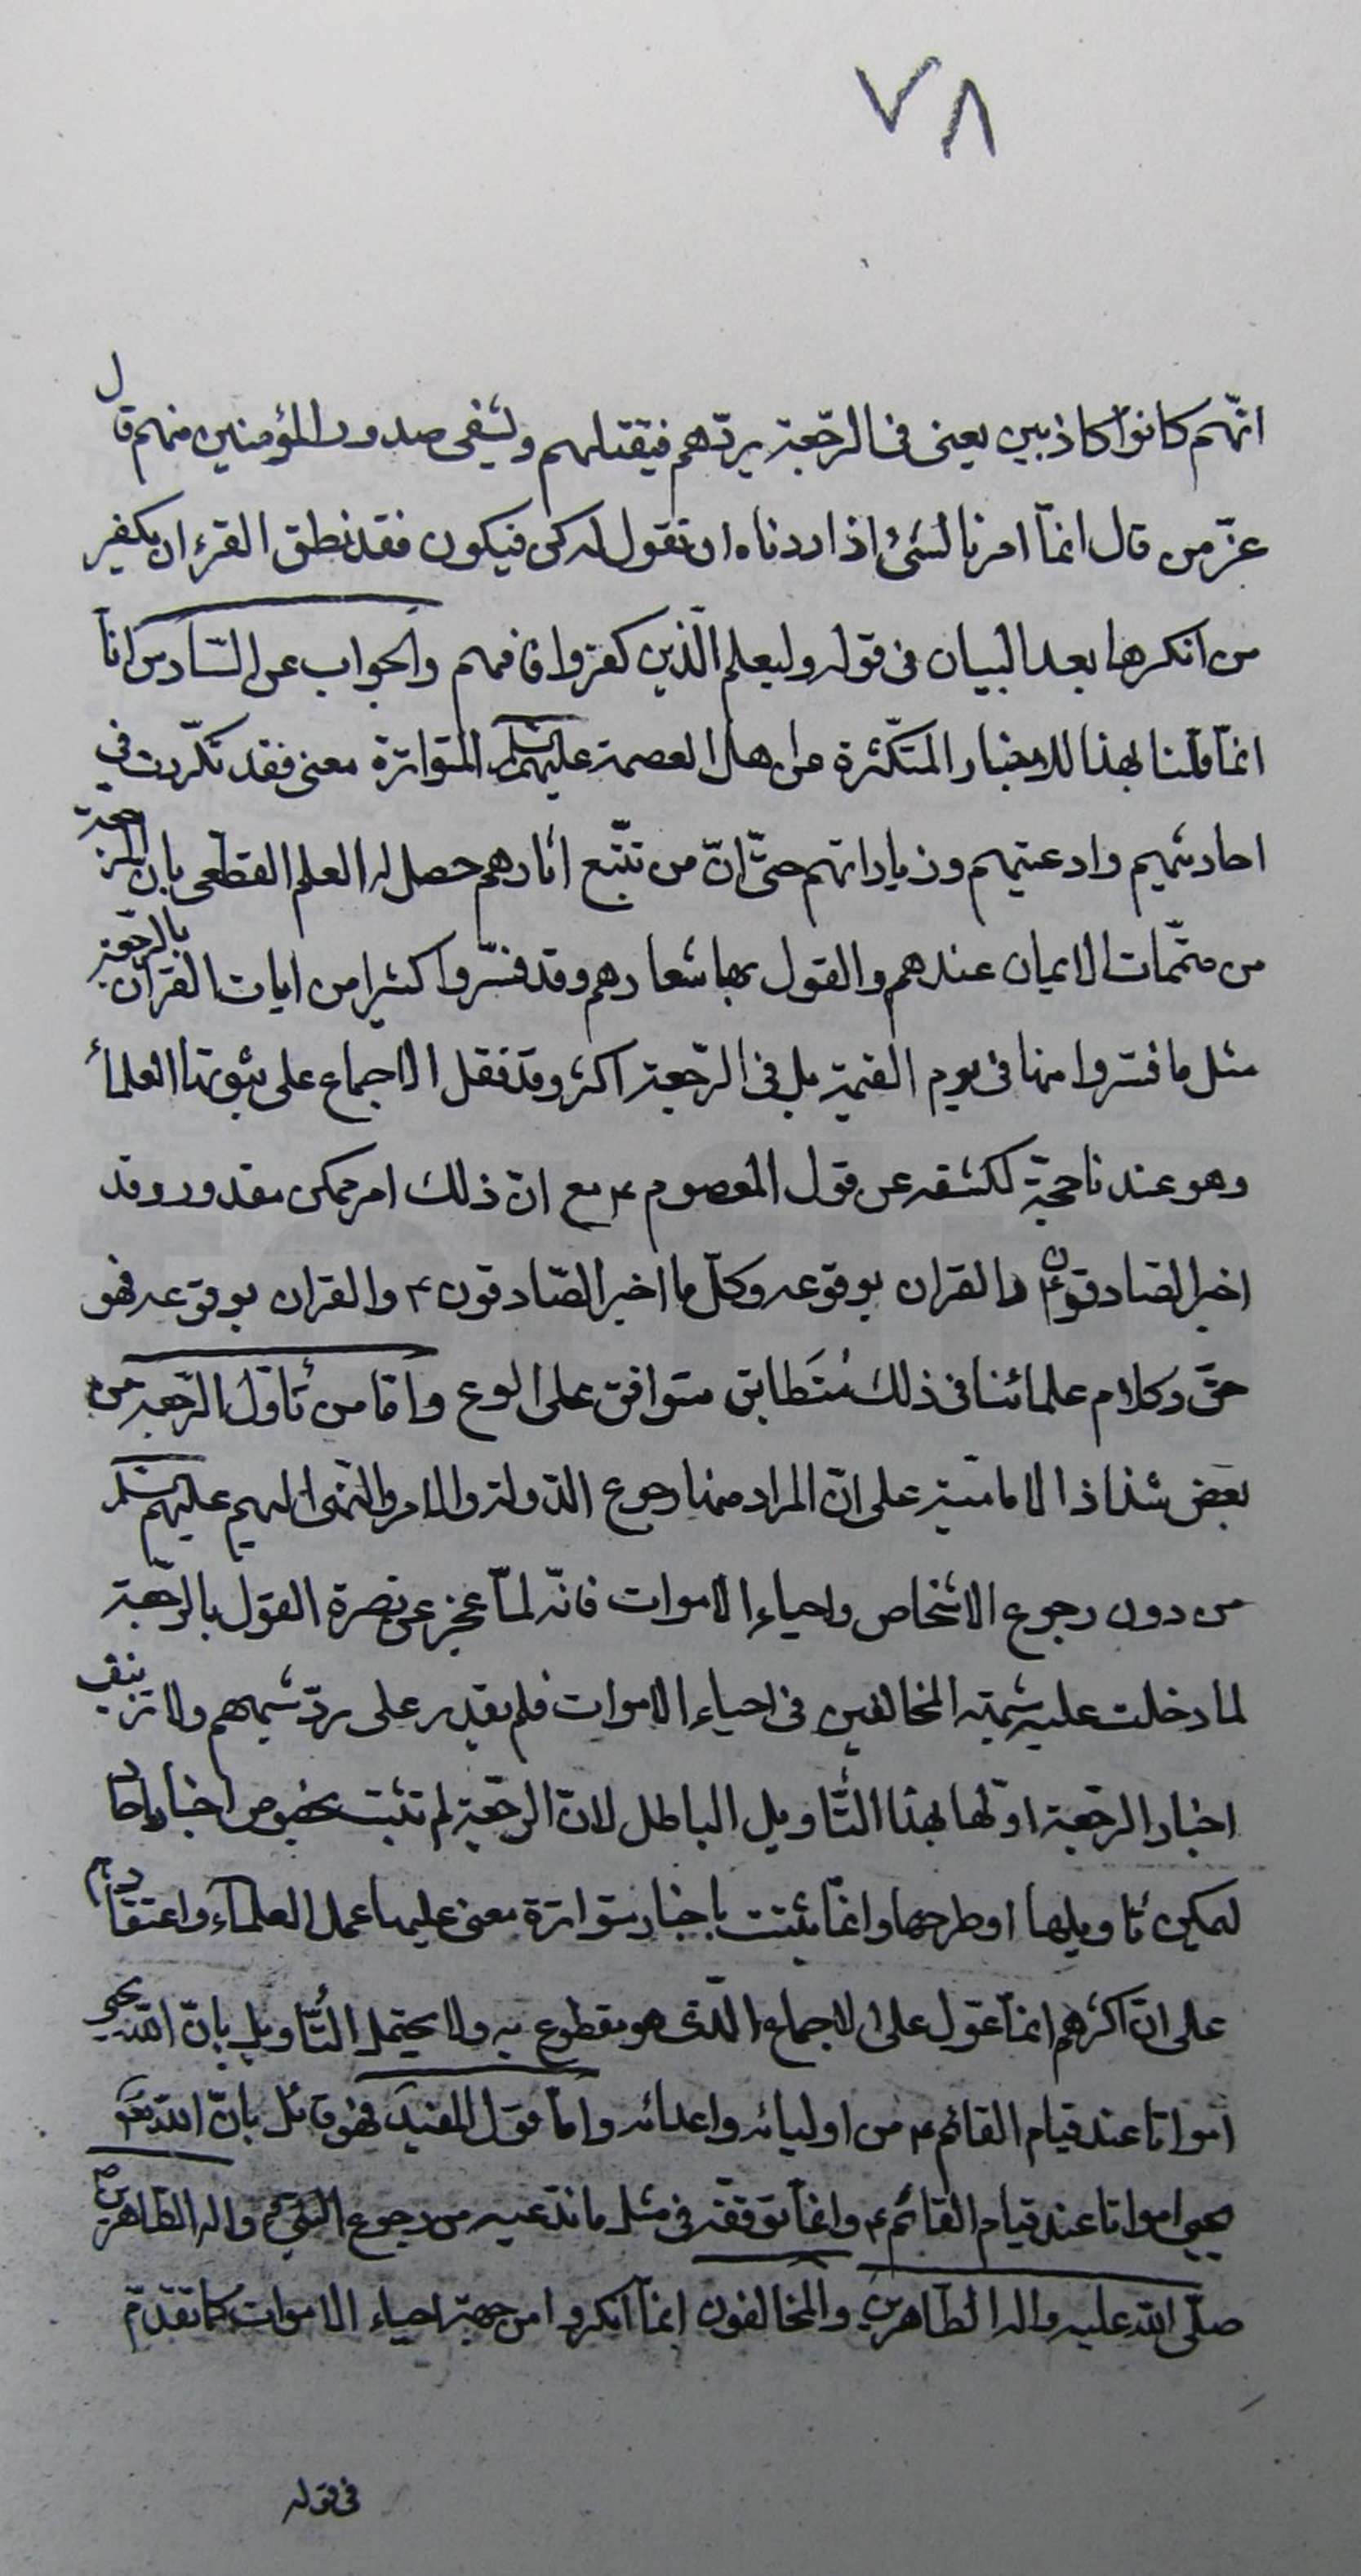 ٧٨
انّهم كانوا كاذبين يعنى فى الرّجعة يردّهم فيقتلهم ويشفى صدور المؤمنين منهم قال
عزّ من قال انمّا امرنا لشئ اذا اردناه ان نقول له كن فيكون فقد نطق القرءان بكفر
من انكرها بعد البيان فى قوله وليعلم الّذين كفروا فافهم والجواب عن السّادس انّا
انمّا قلنا بهذا للاخبار المتكثّرة عن اهل العصمة عليهم السلم المتواترة معنى فقد تكرّرت في
احاديثهم وادعيتهم وزياراتهم حتّى انّ من تتبّع اثارهم حصل له العلم القطعى بان الرجعة
من متمّمات الايمان عندهم والقول بها شعارهم وقد فسّروا كثيرا من ايات القران بالرّجعة
مثل ما فسّروا منها فى يوم القيمة بل فى الرّجعة اكثر وقد نقل الاجماع على ثبوتها العلمأ
وهو عندنا حجّة لكشفه عن قول المعصوم ع مع انّ ذلك امر ممكن مقدور وقد
اخبر الصّادقون ع والقران بوقوعه وكلّ ما اخبر الصّادقون ع والقران بوقوعه فهو
حقّ وكلام علمائنا فى ذلك مُتَطابق متوافق على الوقوع وامّا من تأوّل الرّجعة من
بعض شذاذ الاماميّة على انّ المراد منها رجوع الدّولة والامر والنّهى اليهم عليهم السلم
من دون رجوع الاشخاص واحياء الاموات فانّه لمّا عجز عن نصرة القول بالرّجعة
لما دخلت عليه شبهة المخالفين فى احياء الاموات فلم يقدر على ردّ شبههم ولا تزييف
اخبار الرّجعة اوّلها بهذا التّأويل الباطل لانّ الرّجعة لم تثبت بخصوص اخبار احاد
ليمكن تأويلها او طرحها وانمّا ثبتت باخبار متواترة معنى عليها عمل العلمآء واعتقادهم
على انّ اكثرهم انمّا عوّل على الاجماع الّذى هو مقطوع به ولا يحتمل التّأويل بانّ اللّه يحيى
امواتا عند قيام القائم ع من اوليائه واعدائه وامّا قول المفيد فهو قائل بانّ اللّه تعالى
يحيى امواتا عند قيام القائم ع وانمّا توقّفه فى مثل ما ندّعيه من رجوع النّبىّ ص واله الطّاهرين
صلّى اللّه عليه واله الطّاهرين والمخالفون انمّا انكروا من جهة احياء الاموات كما تقدّم
فى قوله